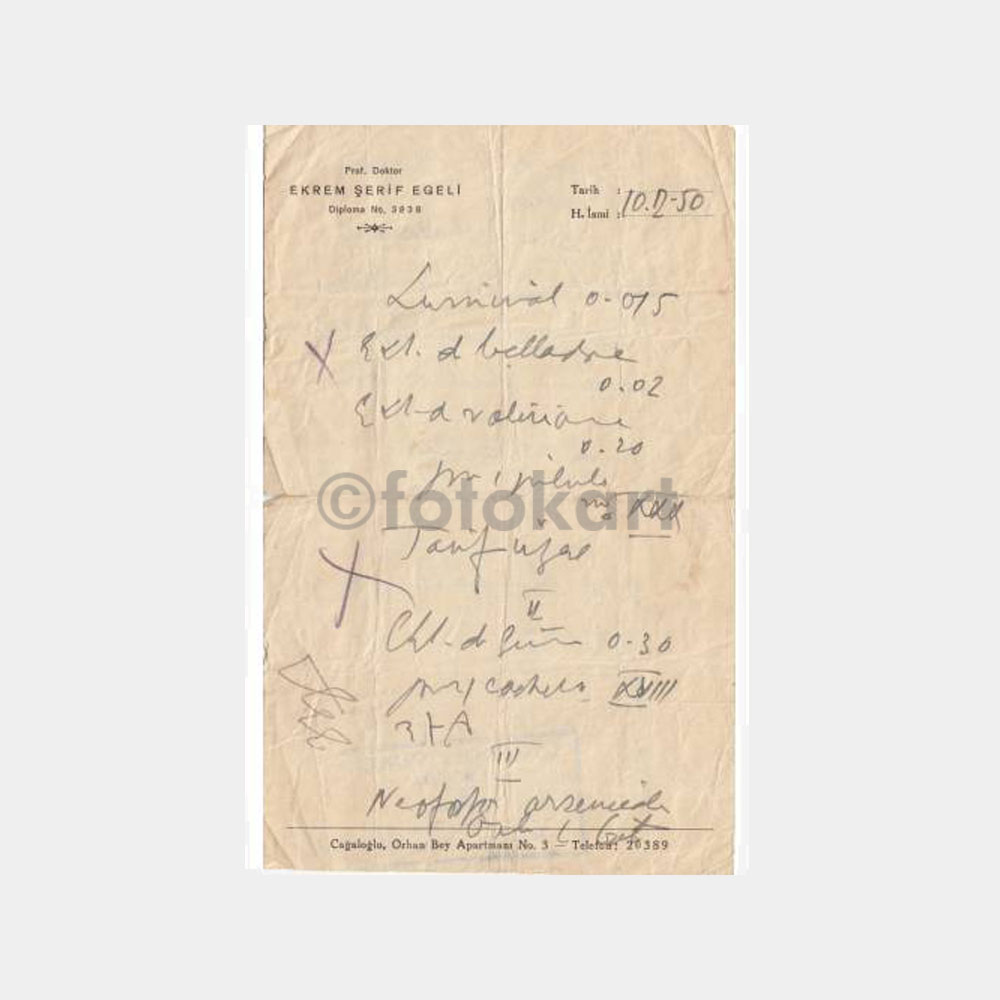 Prof. Doktor
EKREM ŞERİF EGELİ
Diploma No. 3938
Tarih : 10.II-50
H. İsmi :
Luminal 0-015
Ext. d belladone
0.02
Ext-d valeriane
0.20
pr 1 pilule
no XXX
Tarif üzre
II
0-30
pr 1 cachets XVIII
III
Neofosfor arsenicale
Cağaloğlu, Orhan Bey Apartmanı No. 3 — Telefon: 20389
©fotokart